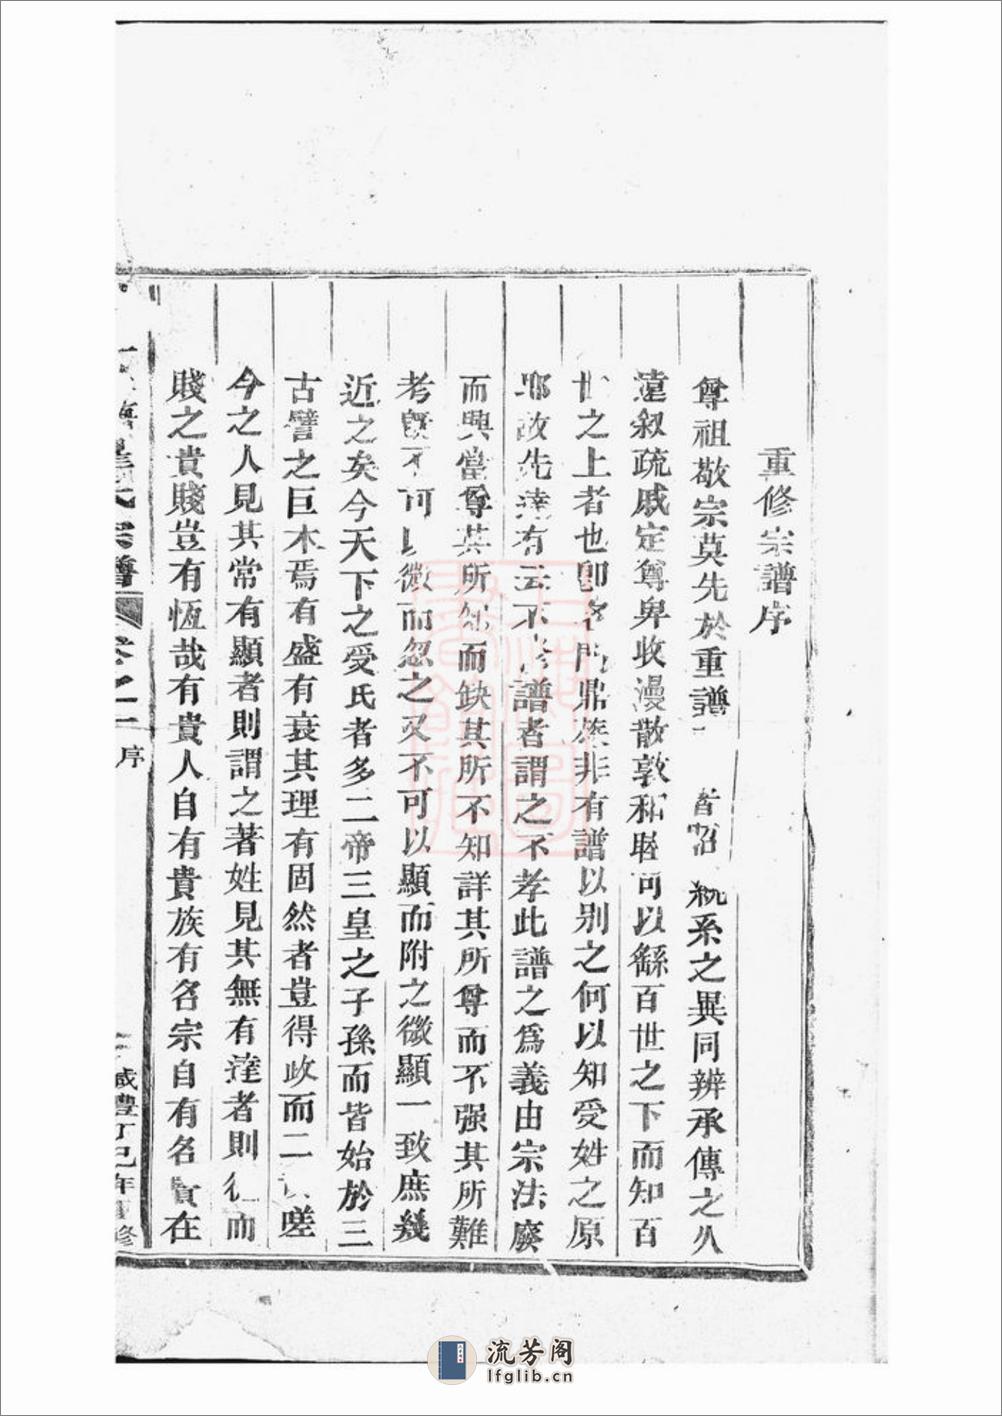 重修宗譜序
尊祖敬宗莫先於重譜 昔 紹 統系之異同辨承傳之久
遠叙疏戚定尊卑收漫散敦和睦可以繇百世之下而知百
世之上者也卽 門鼎族非有譜以别之何以知受姓之原
耶故先達有云不修譜者謂之不孝此譜之爲義由宗法廢
而興當尊其所知而缺其所不知詳其所尊而不强其所難
考旣不可以微而忽之又不可以顯而附之微顯一致庶幾
近之矣今天下之受氏者多二帝三皇之子孫而皆始於三
古譬之巨木焉有盛有衰其理有固然者豈得政而二 嗟
今之人見其常有顯者則謂之著姓見其無有達者則 而
賤之貴賤豈有恆哉有貴人自有貴族有名宗自有名 在
氏宗譜 卷之一 序 咸豐丁巳年 修
流芳阁
lfglib.cn